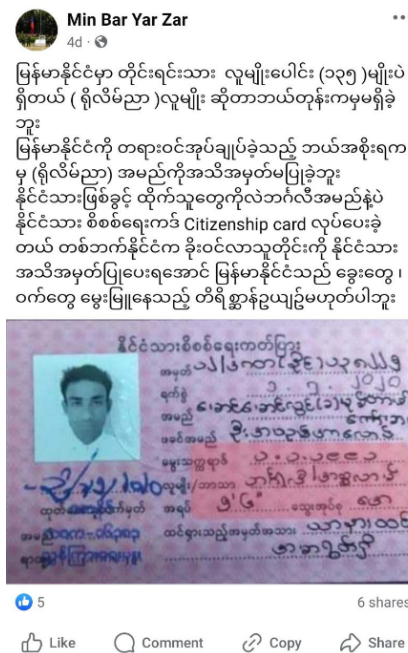 Min Bar Yar Zar
4d
မြန်မာနိုင်ငံမှာ တိုင်းရင်းသား လူမျိုးပေါင်း (၁၃၅ )မျိုးပဲ
ရှိတယ် ( ရိုလိမ်ညာ )လူမျိုး ဆိုတာဘယ်တုန်းကမှမရှိခဲ့
ဘူး
မြန်မာနိုင်ငံကို တရားဝင်အုပ်ချုပ်ခဲ့သည့် ဘယ်အစိုးရက
မှ (ရိုလိမ်ညာ) အမည်ကိုအသိအမှတ်မပြုခဲ့ဘူး
နိုင်ငံသားဖြစ်ခွင့် ထိုက်သူတွေကိုလဲဘင်္ဂလီအမည်နဲ့ပဲ
နိုင်ငံသား စိစစ်ရေးကဒ် Citizenship card လုပ်ပေးခဲ့
တယ် တစ်ဘက်နိုင်ငံက ခိုးဝင်လာသူတိုင်းကို နိုင်ငံသား
အသိအမှတ်ပြုပေးရအောင် မြန်မာနိုင်ငံသည် ခွေးတွေ ၊
ဝက်တွေ မွေးမြူနေသည့် တိရိစ္ဆာန်ဥယျာဥ်မဟုတ်ပါဘူး
နိုင်ငံသားစိစစ်ရေးကတ်ပြား
အမှတ်
ရက်စွဲ ၁.၇.၂၀၂၀
အမည်
ဖခင်အမည်
မွေးသက္ကရာဇ်
လူမျိုး/ဘာသာ
အရပ် ၅'၆" သွေးအုပ်စု
ထင်ရှားသည့်အမှတ်အသား
5
6 shares
Like
Comment
Copy
Share